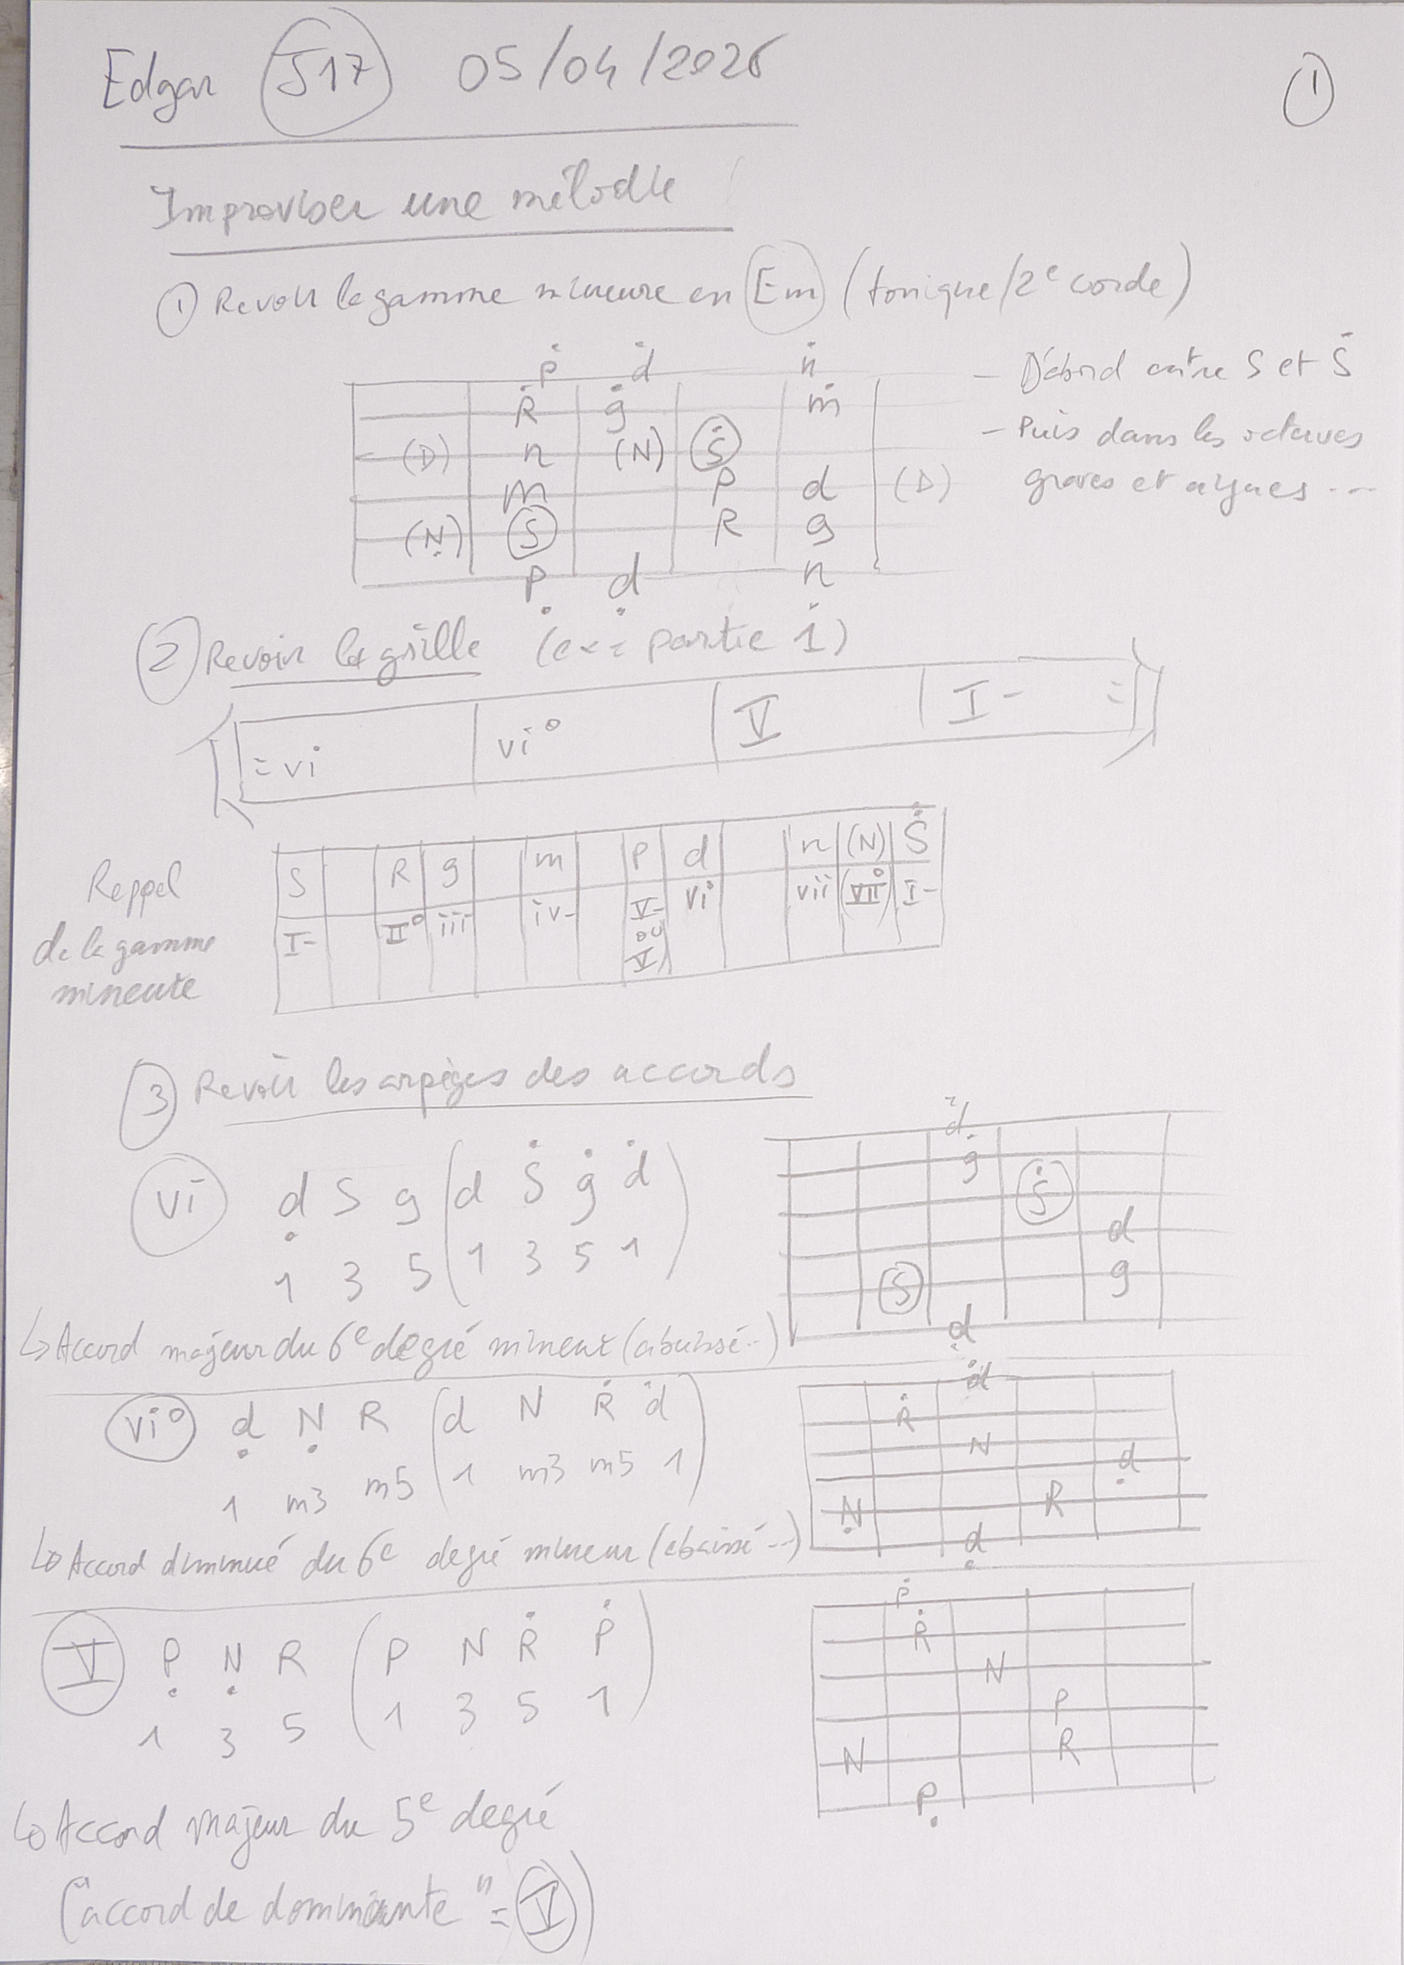 Edgar S17 05/04/2026
1
Improviser une mélodie
① Revoir la gamme mineure en Em (tonique/2e corde)
Ṗ ḋ ṅ
Ṙ ġ ṁ
(D) n (N) Ṡ
m P d (D)
(Ṇ) S R g
Ṗ ḍ n
- D'abord entre S et Ṡ
- Puis dans les octaves
graves et aigues ...
② Revoir la grille (ex= partie 1)
vi | vi° | V | I-
Rappel
de la gamme
mineure
S R g m P d n (N) Ṡ
I- II° iii iv- V- ou V vi vii (VII°) I-
③ Revoir les arpèges des accords
vi ḍ S g (d Ṡ ġ ḋ)
1 3 5 (1 3 5 1)
ḋ
ġ
Ṡ
d
S g
ḍ
↳ Accord majeur du 6e degré mineur (abaissé..)
vi° ḍ Ṇ R (d N Ṙ ḋ)
1 m3 m5 (1 m3 m5 1)
ḋ
Ṙ
N
ḍ
Ṇ R
ḍ
↳ Accord diminué du 6e degré mineur (abaissé ..)
V P̣ Ṇ R (P N Ṙ Ṗ)
1 3 5 (1 3 5 1)
Ṗ
Ṙ
N
P
N R
P̣
↳ Accord majeur du 5e degré
("accord de dominante" = V)